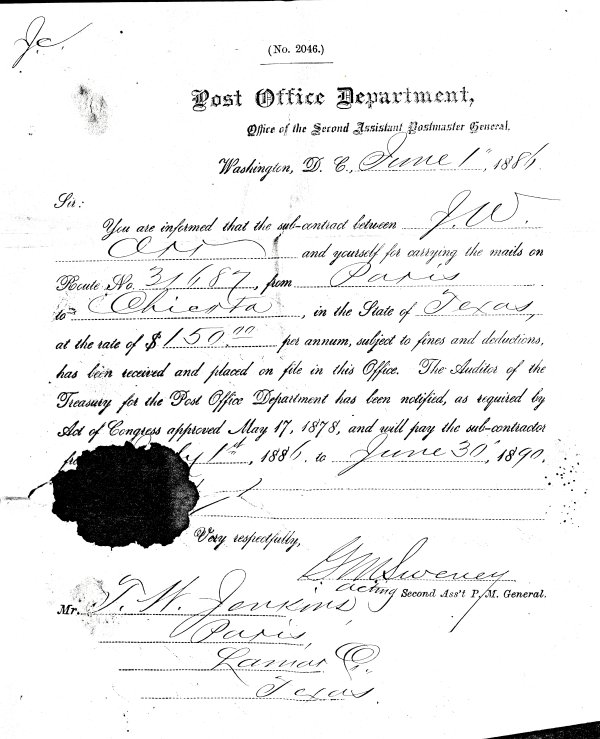 Jc.
(No. 2046.)
Post Office Department,
Office of the Second Assistant Postmaster General.
Washington, D. C., June 1st, 1886.
Sir:
You are informed that the sub-contract between J. W.
Orr and yourself for carrying the mails on
Route No. 31687, from Paris
to Chicota, in the State of Texas,
at the rate of $150.00 per annum, subject to fines and deductions,
has been received and placed on file in this Office. The Auditor of the
Treasury for the Post Office Department has been notified, as required by
Act of Congress approved May 17, 1878, and will pay the sub-contractor
1st, 1886 to June 30, 1890.
Very respectfully,
Acting Second Ass't P. M. General.
Mr. T. W. Jenkins,
Paris,
Lamar Co.
Texas.